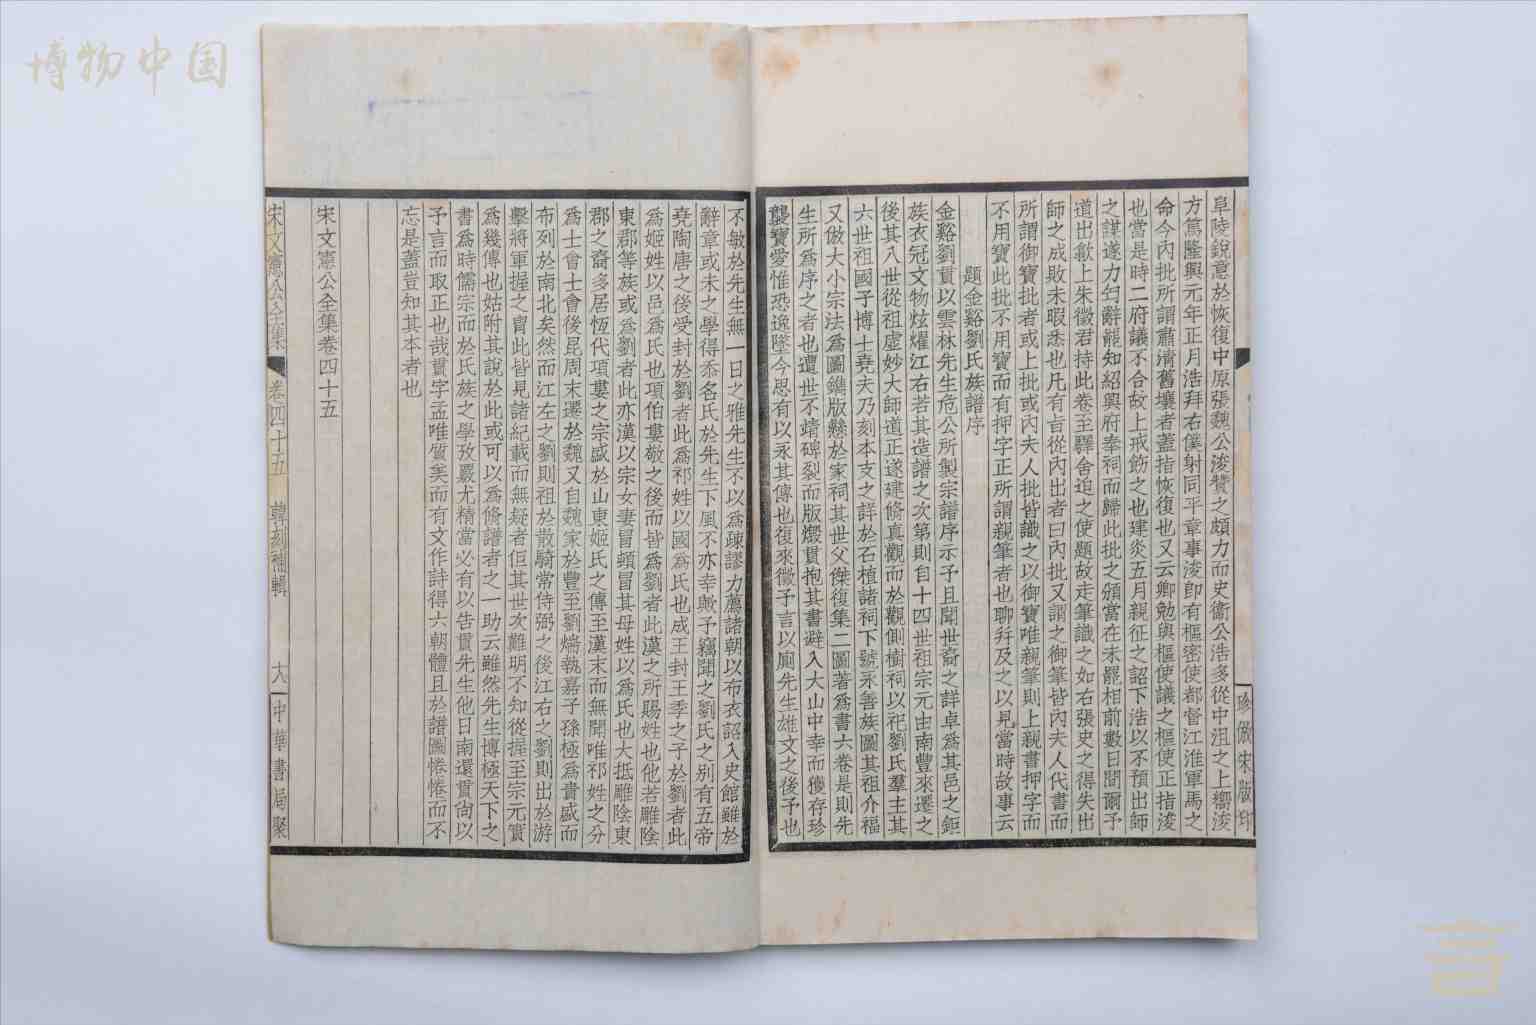 博物中国
阜陵銳意於恢復中原張魏公浚贊之頗力而史衞公浩多從中沮之上嚮浚
方篤隆興元年正月浩拜右僕射同平章事浚卽有樞密使都督江淮軍馬之
命今內批所謂肅淸舊壤者蓋指恢復也又云卿勉與樞使議之樞使正指浚
也當是時二府議不合故上戒飭之也建炎五月親征之詔下浩以不預出師
之謀遂力丐辭罷知紹興府奉祠而歸此批之頒當在未罷相前數日間爾予
道出歙上朱徽君持此卷至驛舍迫之使題故走筆識之如右張史之得失出
師之成敗未暇悉也凡有旨從內出者曰內批又謂之御筆皆內夫人代書而
所謂御寶批者或上批或內夫人批皆識之以御寶唯親筆則上親書押字而
不用寶此批不用寶而有押字正所謂親筆者也聊幷及之以見當時故事云
題金谿劉氏族譜序
金谿劉貫以雲林先生危公所製宗譜序示予且聞世裔之詳卓爲其邑之鉅
族衣冠文物炫燿江右若其造譜之次第則自十四世祖宗元由南豐來遷之
後其八世從祖虛妙大師道正遂建脩眞觀而於觀側樹祠以祀劉氏羣主其
六世祖國子博士堯夫乃刻本支之詳於石植諸祠下號永善族圖其祖介福
又倣大小宗法爲圖鐫版懸於家祠其世父傑復集二圖著爲書六卷是則先
生所爲序之者也遭世不靖碑裂而版燬貫抱其書避入大山中幸而獲存珍
襲寶愛惟恐逸墜今思有以永其傳也復來徵予言以廁先生雄文之後予也
珍倣宋版印
不敏於先生無一日之雅先生不以爲疎謬力薦諸朝以布衣詔入史館雖於
辭章或未之學得忝名氏於先生下風不亦幸歟予竊聞之劉氏之別有五帝
堯陶唐之後受封於劉者此爲祁姓以國爲氏也成王封王季之子於劉者此
爲姬姓以邑爲氏也項伯婁敬之後而皆爲劉者此漢之所賜姓也他若雕陰
東郡等族或爲劉者此亦漢以宗女妻冒頓冒其母姓以爲氏也大抵雕陰東
郡之裔多居恆代項婁之宗盛於山東姬氏之傳至漢末而無聞唯祁姓之分
爲士會士會後昆周末遷於魏又自魏家於豐至劉煓執嘉子孫極爲貴盛而
布列於南北矣然而江左之劉則祖於散騎常侍弼之後江右之劉則出於游
擊將軍握之冑此皆見諸紀載而無疑者但其世次難明不知從握至宗元實
爲幾傳也姑附其說於此或可以爲脩譜者之一助云雖然先生博極天下之
書爲時儒宗而於氏族之學攷覈尤精當必有以告貫先生他日南還貫尙以
予言而取正也哉貫字孟唯質美而有文作詩得六朝體且於譜圖惓惓而不
忘是蓋豈知其本者也
宋文憲公全集卷四十五
宋文憲公全集 卷四十五 韓刻補輯 十八 中華書局聚